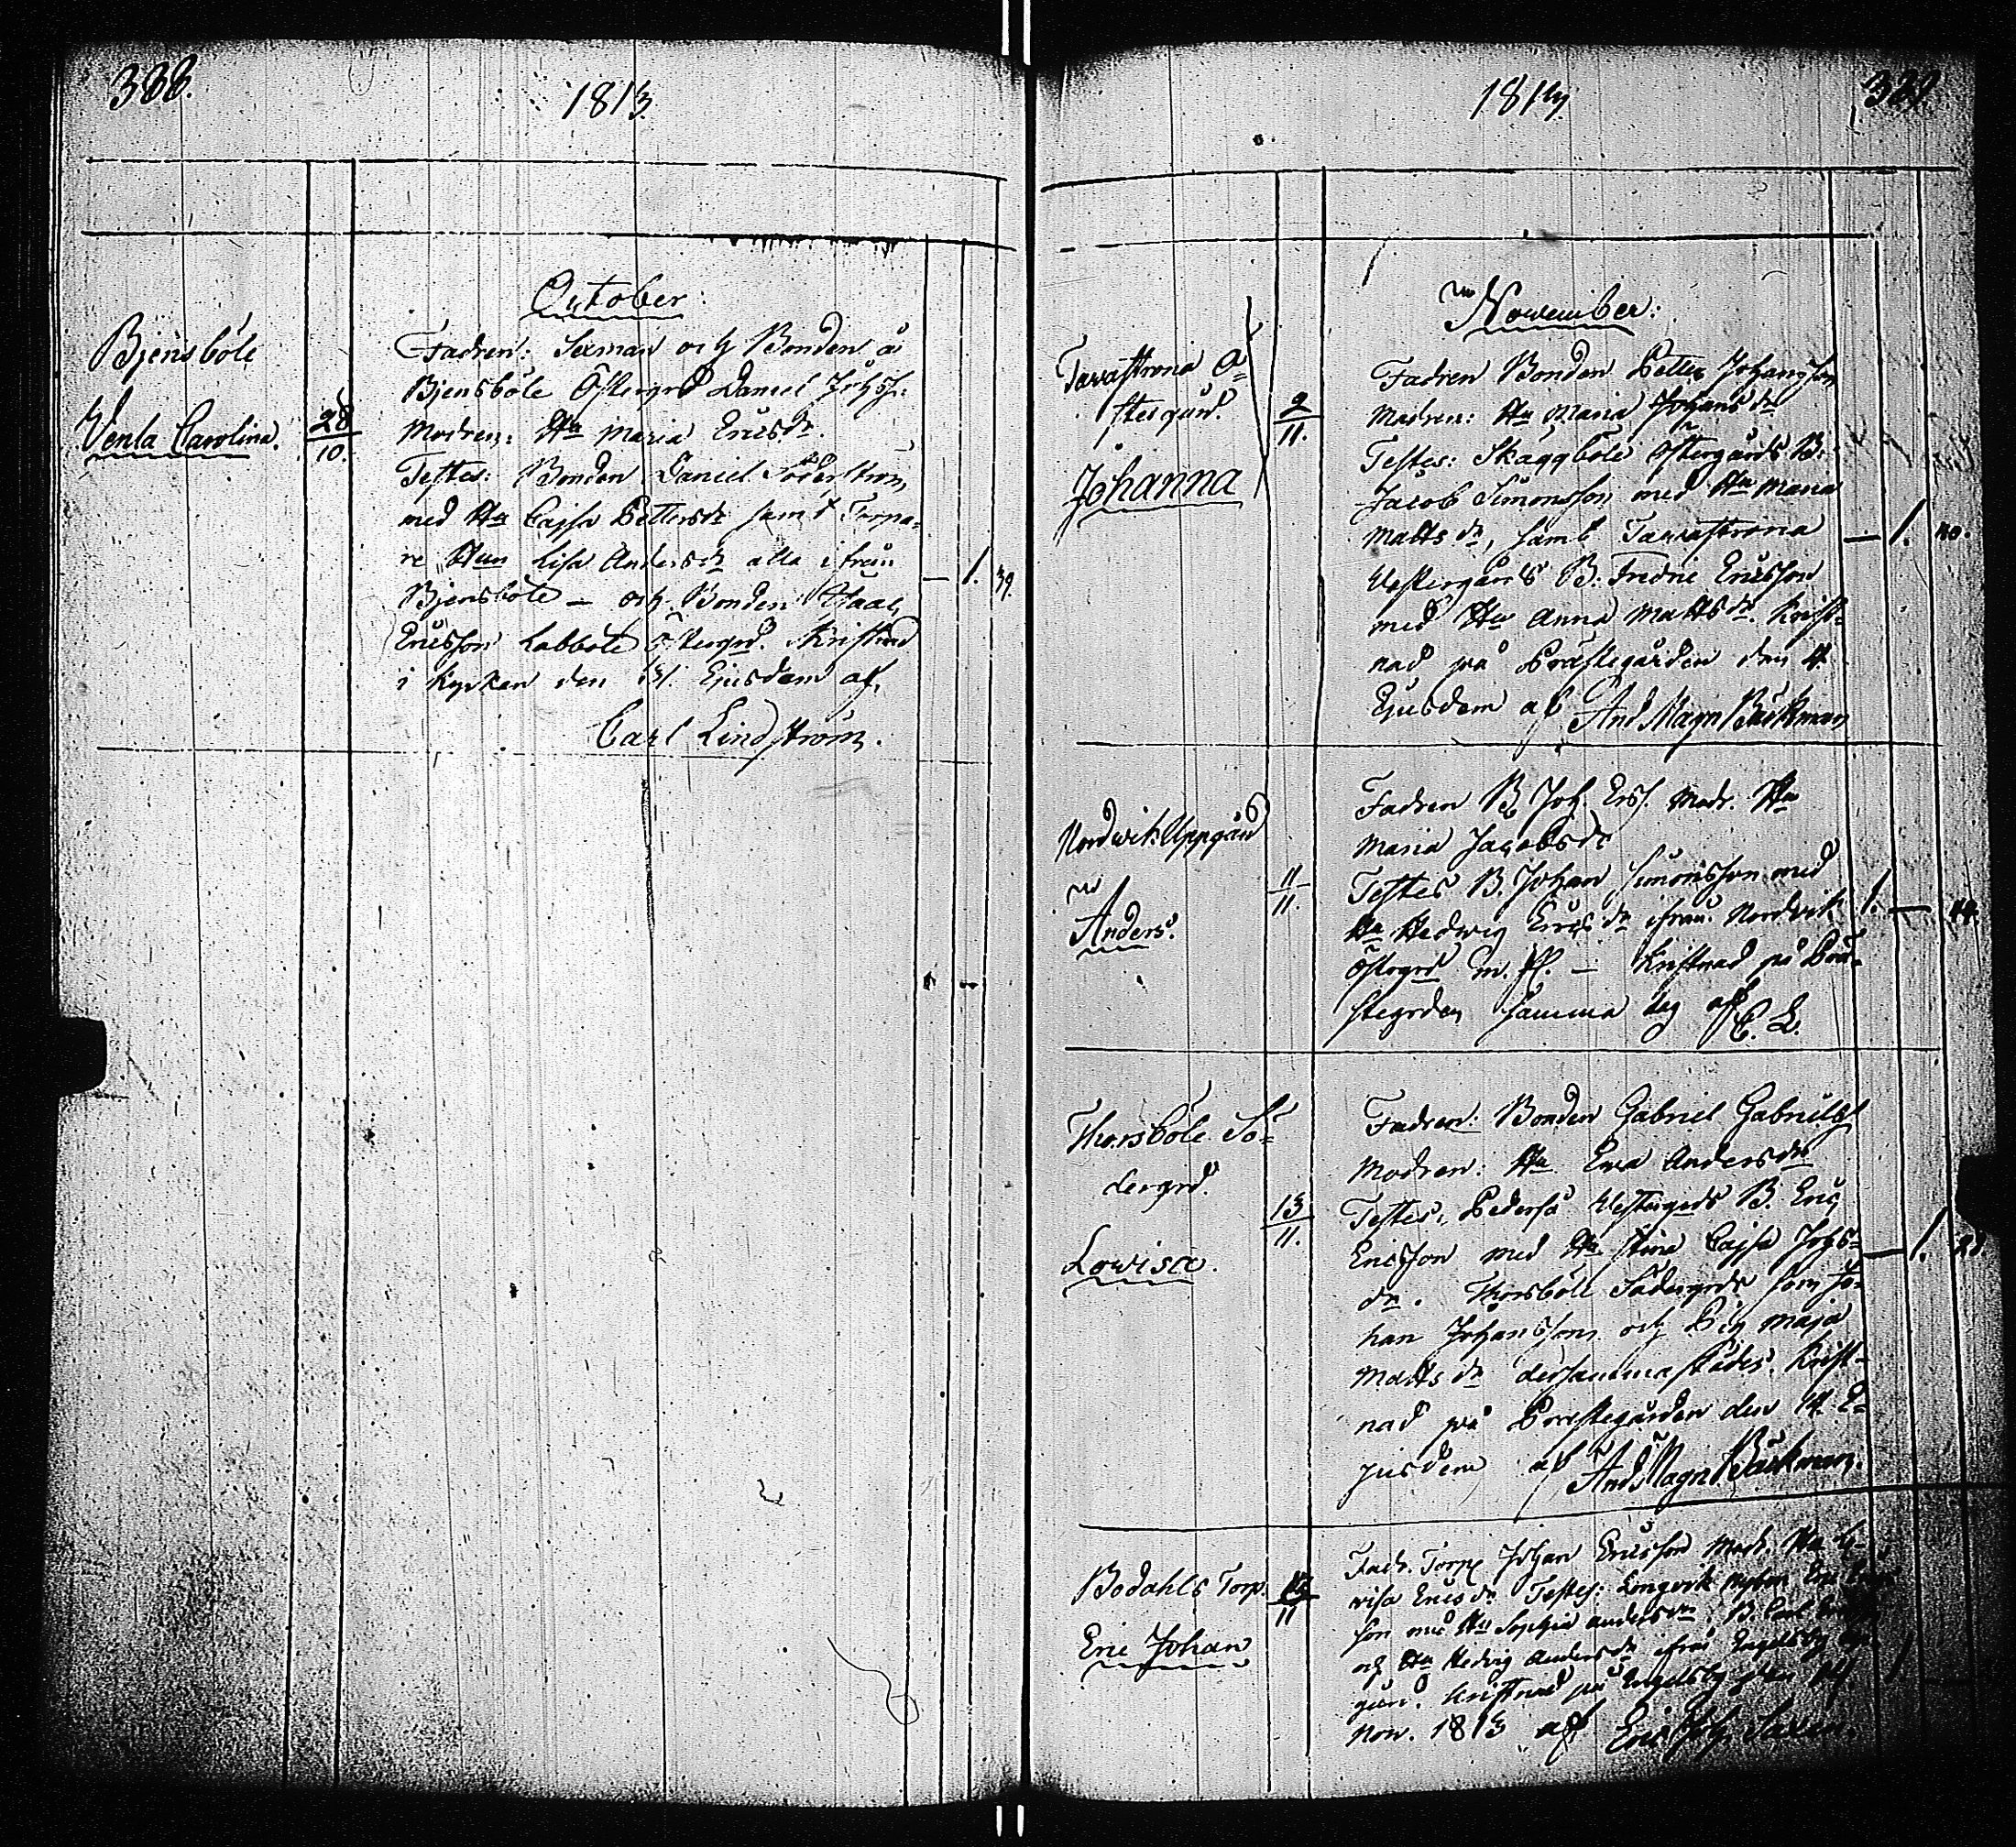 388.
1813.
October:
Bjensböle
Venla Carolina.
28
10.
Fadren: Sexman och Bonden å
Bjensböle Östergrd Daniel Johss:
Modren: Hu Maria Ericsdr.
Testes: Bonden Daniel Söderström
med Hu Cajsa Pettersdr samt Torpa-
re Hun Lisa Andersdr alla ifrån
Bjensböle – och Bonden Isaac
Ericsson Labböle Östergrd. Kristnad
i Kyrkan den 31. Ejusdem af
Carl Lindström.
— 1. 39.
1813.
389.
November:
Tarrastrona Ö-
stergård.
Johanna
2
11.
Fadren Bonden Petter Johansson
Modren: Hu Maria Johansdr
Testes: Skäggböle Östergårds B:
Jacob Simonsson med Hu Maria
Mattsdr, samt Tarrastrona
Westergårds B. Fredric Ericsson
med Hu Anna Mattsdr. Krist-
nad på Prästegården den 4.
Ejusdem af And Magn Bäckman
— 1. 40.
Nordwik Uppgård
Anders.
11
11.
Fadren B. Joh. Erss. Modr. Hu
Maria Jacobsdr
Testes B. Johan Simonsson med
Hu Hedwig Ericsdr ifrån Nordvik
Östergrd m. fl. — Kristnad på Prä-
stegrden samma dag af C. L.
1. —
Thorsböle Sö-
dergrd.
Lowisa.
13
11.
Fadren: Bonden Gabriel Gabrielss
Modren: Hu Ewa Andersdr
Testes, Pederså Westergrds B. Eric
Ericsson med Hu Stina Cajsa Johs-
dr. Thorsböle Södergrds Son Jo-
han Johansson och Pig Maja
Mattsdr dersammastädes. Krist-
nad på Prästegården den 14. E-
jusdem af And Magn Bäckman.
— 1.
Bodahls Torp.
Eric Johan
11
Fadr. Torp Johan Ericsson Modr. Hu Lo-
wisa Ericsdr Testes: Långvik Eric Erics-
son med Hu Sophia Andersdr, B. Carl
och Hu Hedvig Andersdr ifrån Engelsby
gård. Kristnad på Engelsby den 14.
Nov. 1813 af Eric Joh. Saxén.
1